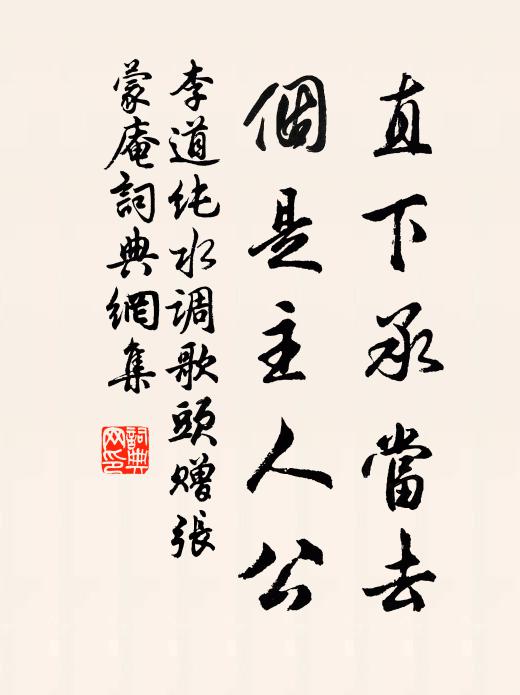 直下承當去
個是主人公
李道纯水调歌頭赠張
蒙庵詞典網集
詞典网印